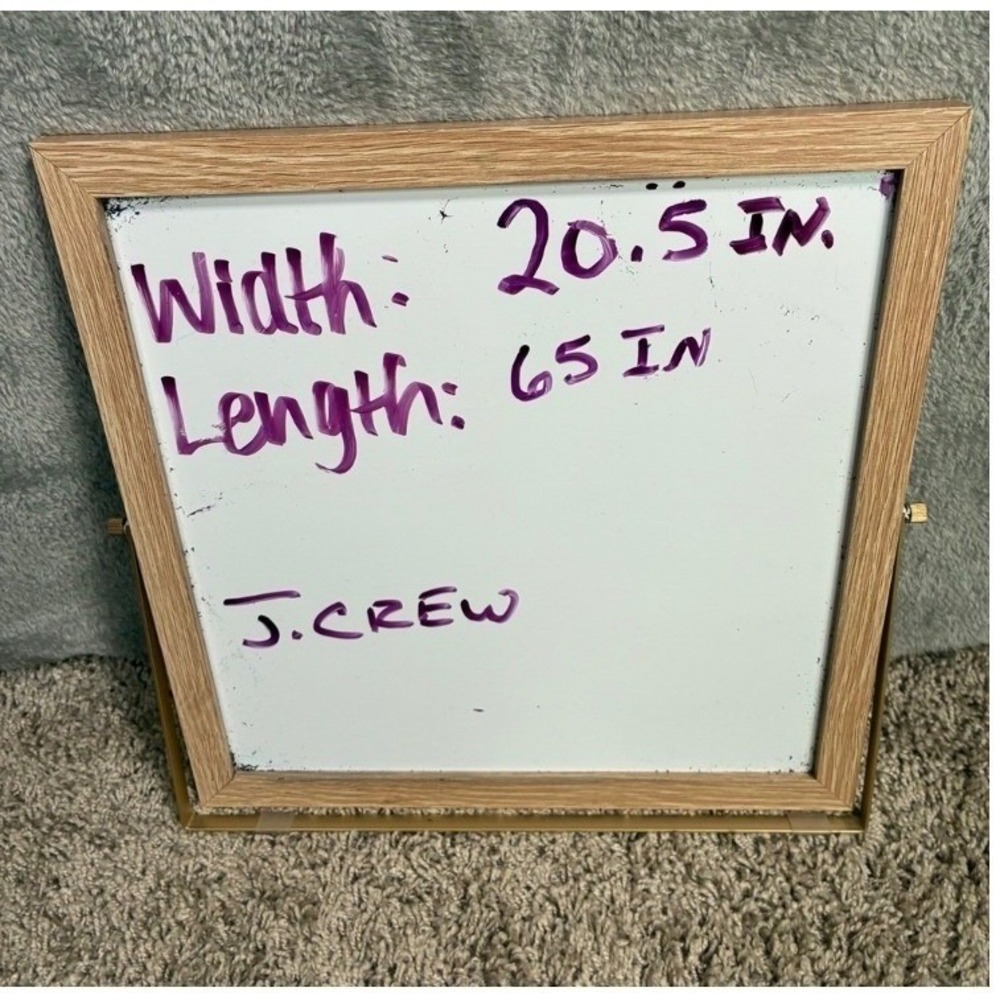 Width: 20.5 IN.
Length: 65 IN
J.CREW